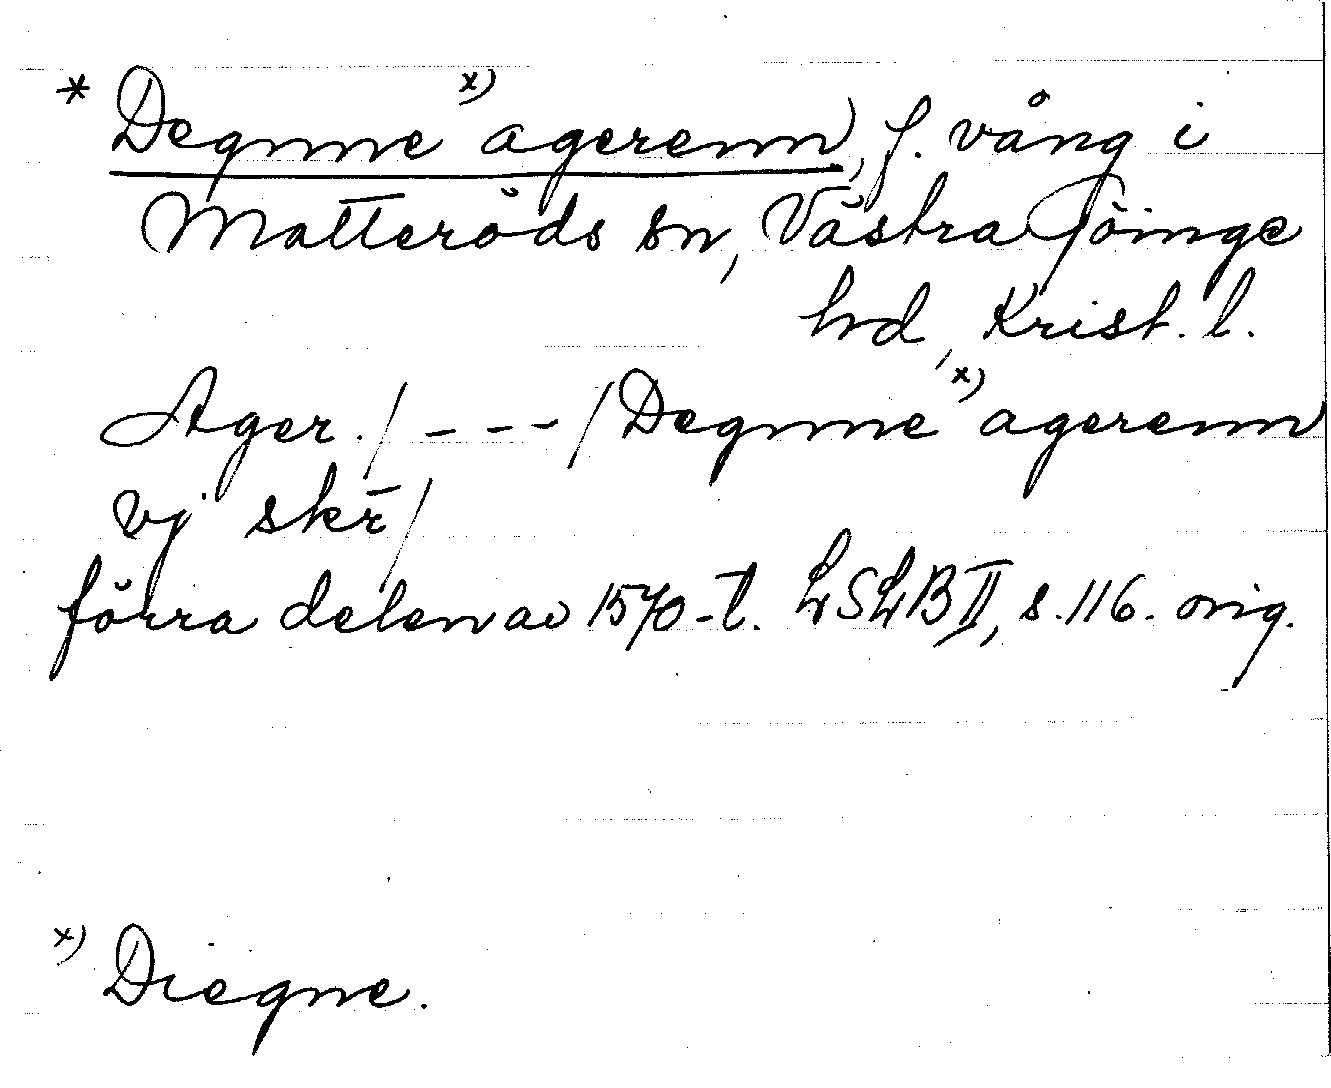 * Degnne x) agerenn, f. vång i
Matteröds sn, Västra Göinge
hd, Krist. l.
Ager. /---/ Degnne x) agerenn
vj skr̄/
förra delen av 1570-t. LSLB II, s. 116. orig.
x) Diegne.